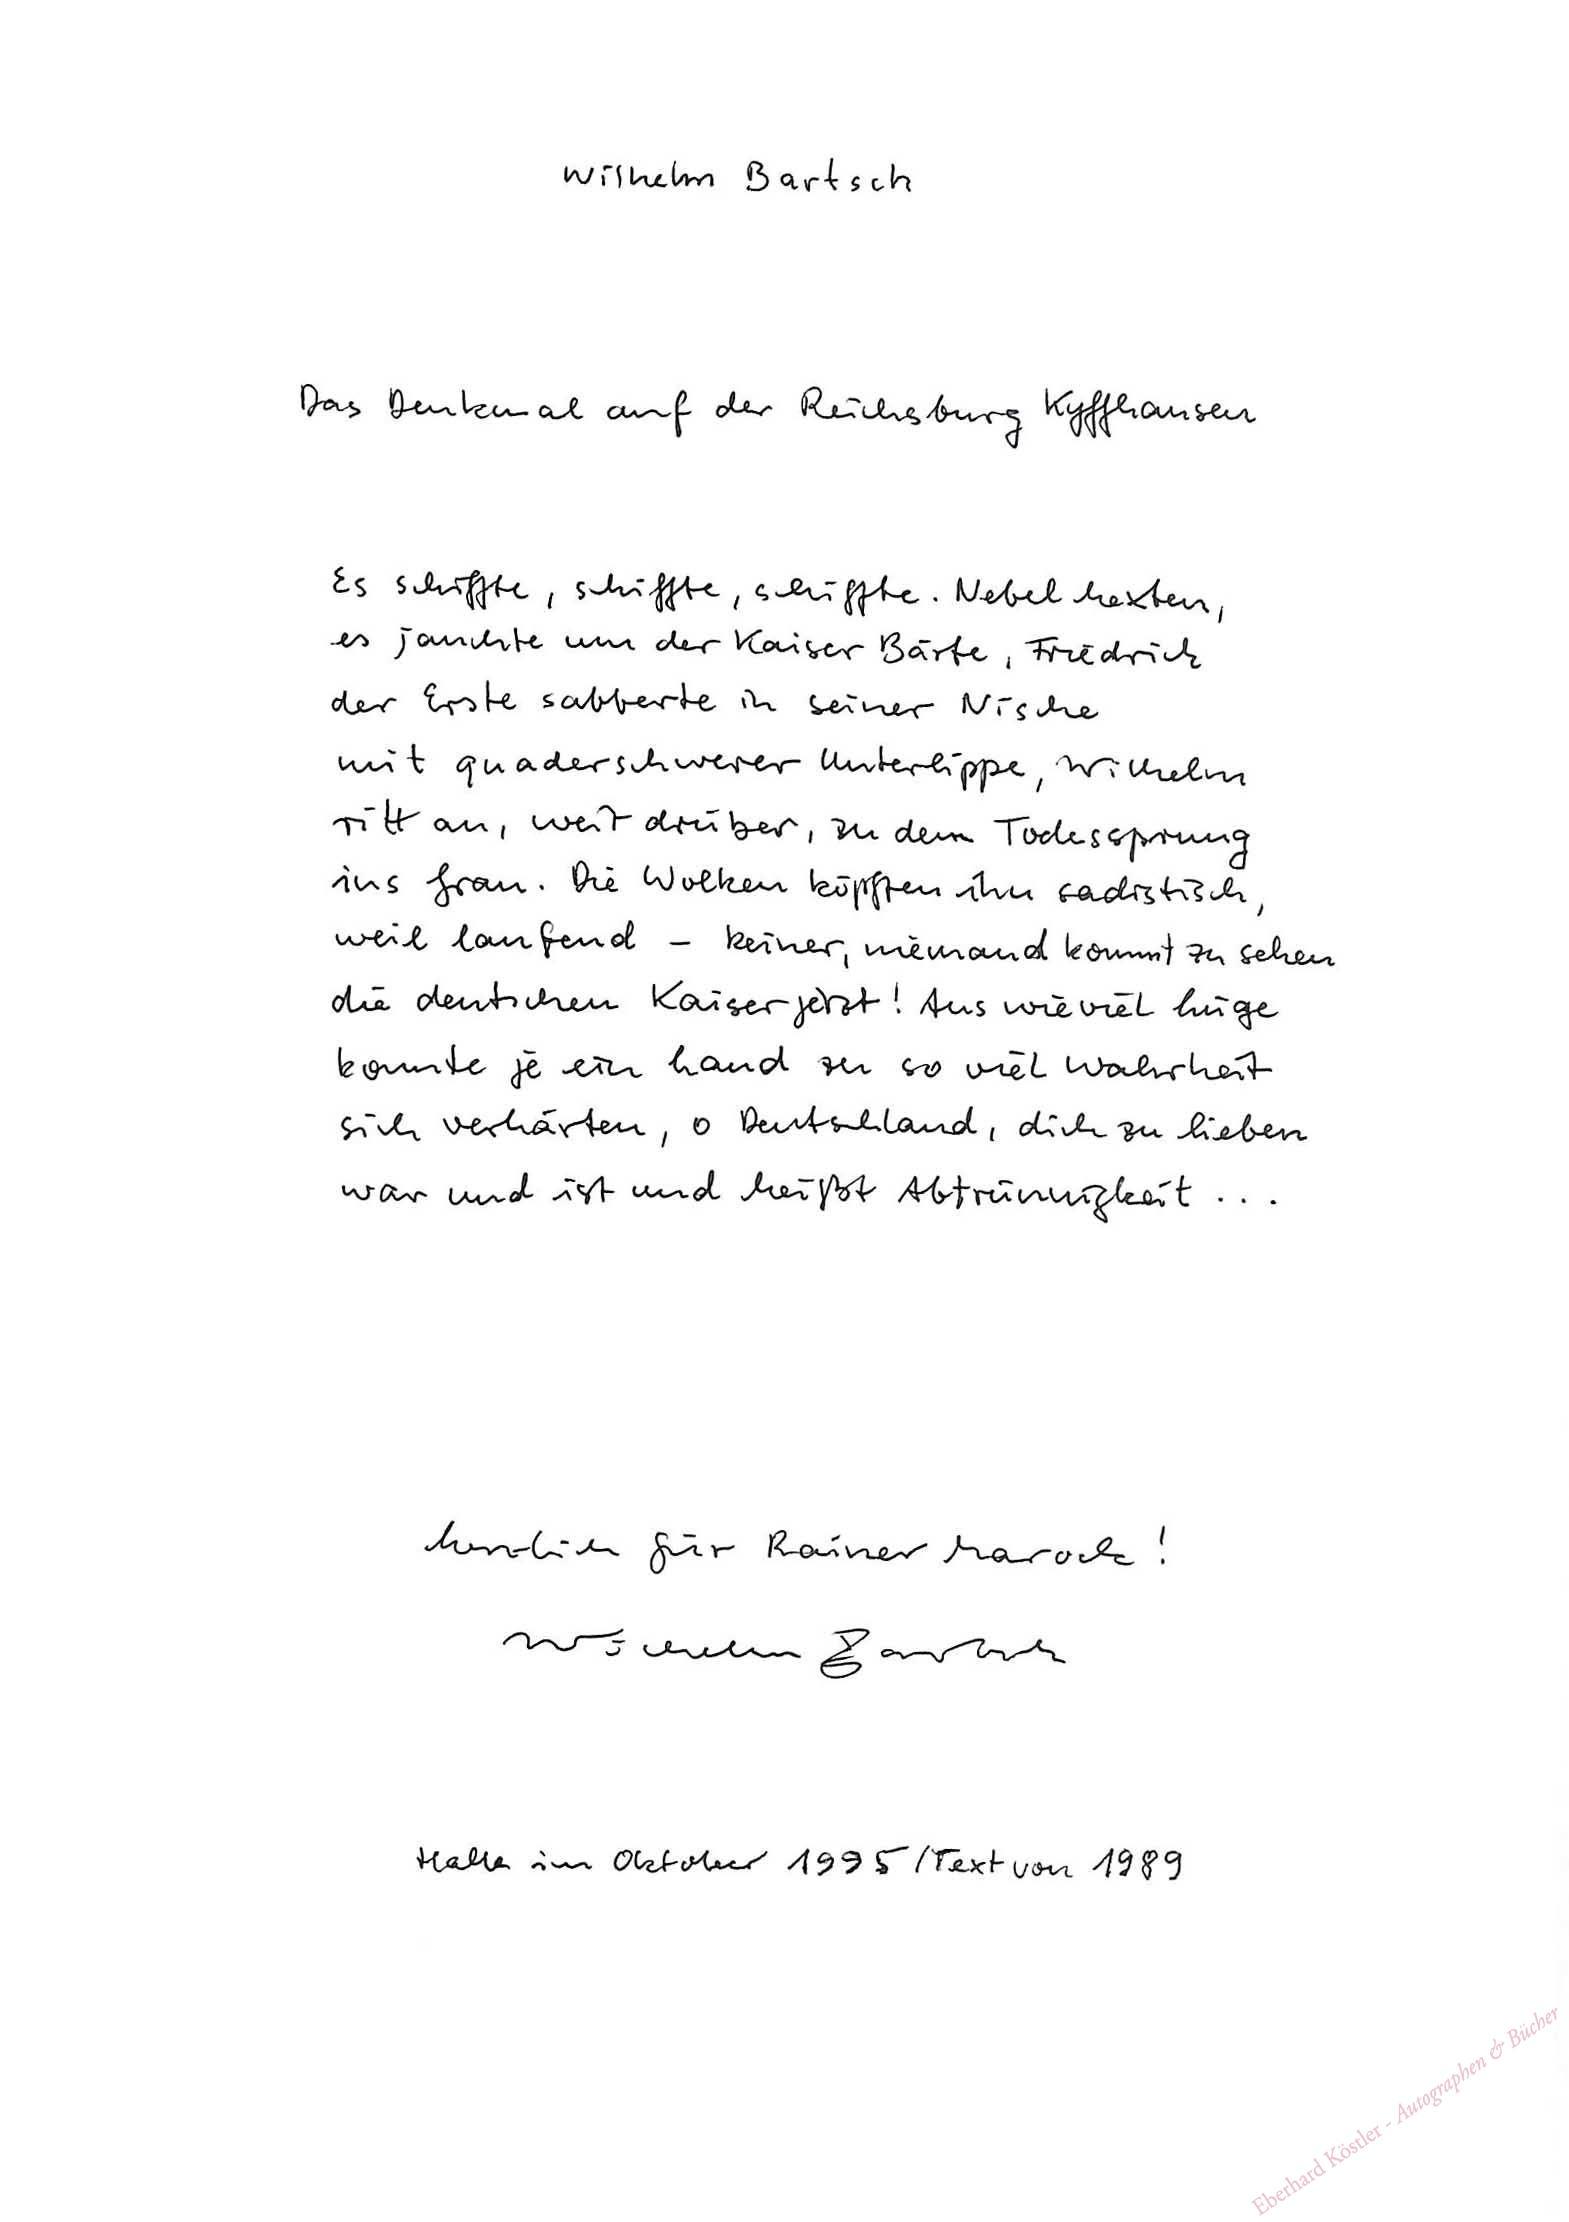 Wilhelm Bartsch
Das Denkmal auf der Reichsburg Kyffhausen
Es schiffte, schiffte, schiffte. Nebel hexten,
es jauchte um der Kaiser Bärte, Friedrich
der Erste sabberte in seiner Nische
mit quaderschwerer Unterlippe, Wilhelm
ritt an, weit drüber, zu dem Todessprung
ins Grau. Die Wolken köpften ihn sadistisch,
weil laufend – keiner, niemand kommt zu sehen
die deutschen Kaiser jetzt! Aus wieviel Lüge
konnte je ein Land zu so viel Wahrheit
sich verhärten, o Deutschland, dich zu lieben
war und ist und heißt Abtrünnigkeit ...
herzlich für Rainer Marock!
Wilhelm Bartsch
Halle im Oktober 1995 / Text von 1989
Eberhard Köstler - Autographen & Bücher